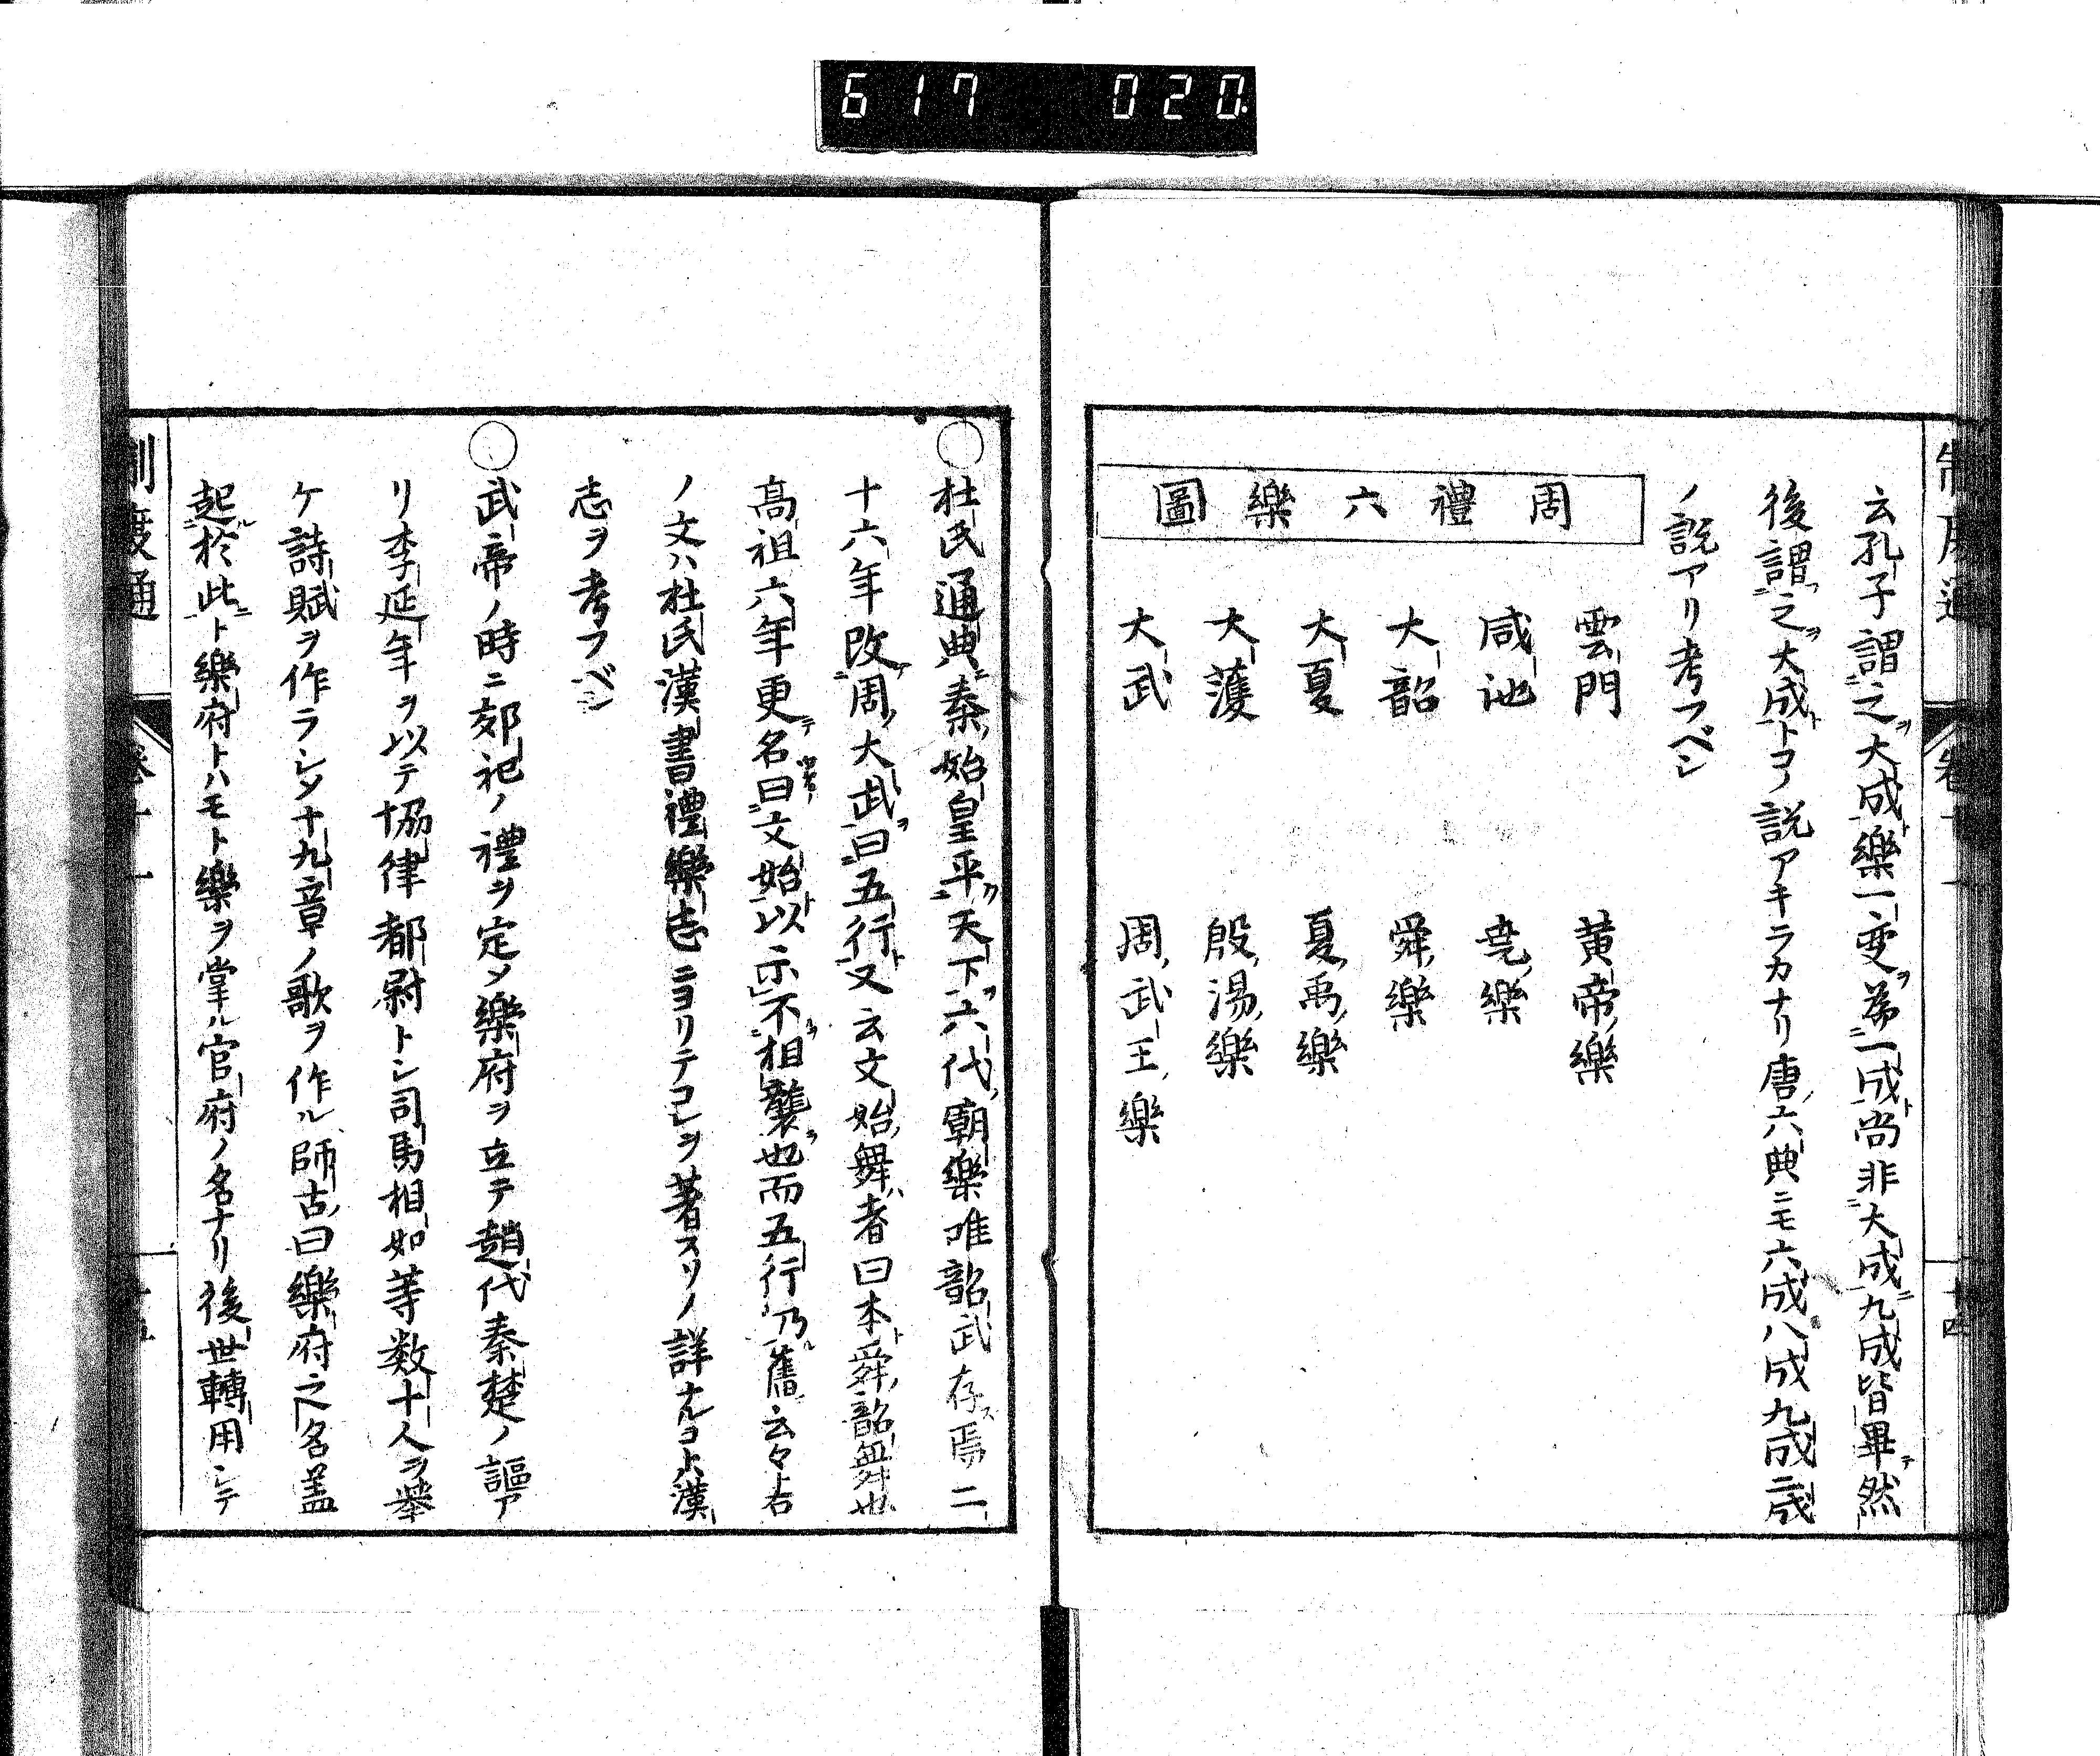 617 020
云孔子謂之大成樂一変爲一成尚非大成九成皆畢然
後謂之大成トコノ説アキラカナリ唐六典ニモ六成八成九成二成
ノ説アリ考フベシ
周禮六樂圖
雲門 黄帝ノ樂
咸池 尭ノ樂
大韶 舜ノ樂
大夏 夏ノ禹ノ樂
大濩 殷ノ湯ノ樂
大武 周ノ武王ノ樂
〇杜氏通典秦始皇平天下六代廟樂唯韶武存焉二
十六年改周大武曰五行又云文始舞者曰本舜韶舞也
髙祖六年更名曰文始以示不相襲也而五行乃舊云々ト右
ノ文ハ杜氏漢書禮樂志ニヨリテコレヲ著スソノ詳ナルコトハ漢
志ヲ考フベシ
〇武帝ノ時ニ郊祀ノ禮ヲ定メ樂府ヲ立テ趙代秦楚ノ謳ア
リ李延年ヲ以テ協律都尉トシ司馬相如等数十人ヲ舉
ケ詩賦ヲ作ラシメ十九章ノ歌ヲ作ル師古曰樂府之名盖
起於此ト樂府トハモト樂ヲ掌ル官府ノ名ナリ後世轉用シテ
制度通 卷十一